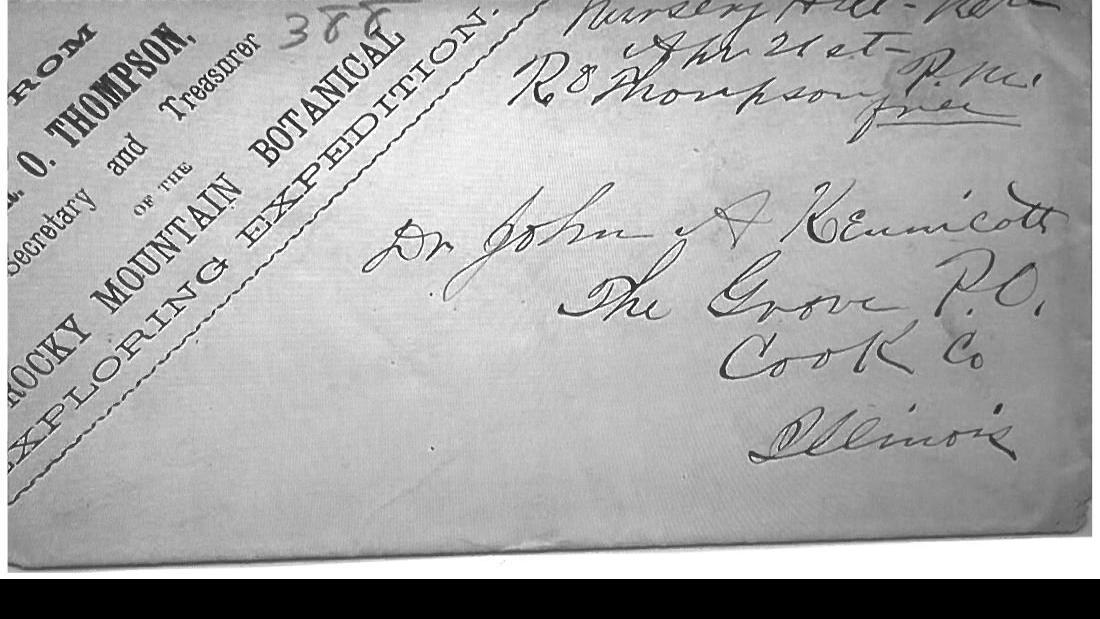 ROM
. O. THOMPSON,
Secretary and Treasurer
OF THE
ROCKY MOUNTAIN BOTANICAL
EXPLORING EXPEDITION.
388
Nursery Hill -
Apr 21st -
R O Thompson P.M.
free
Dr John A Kennicott
The Grove P.O.
Cook Co
Illinois